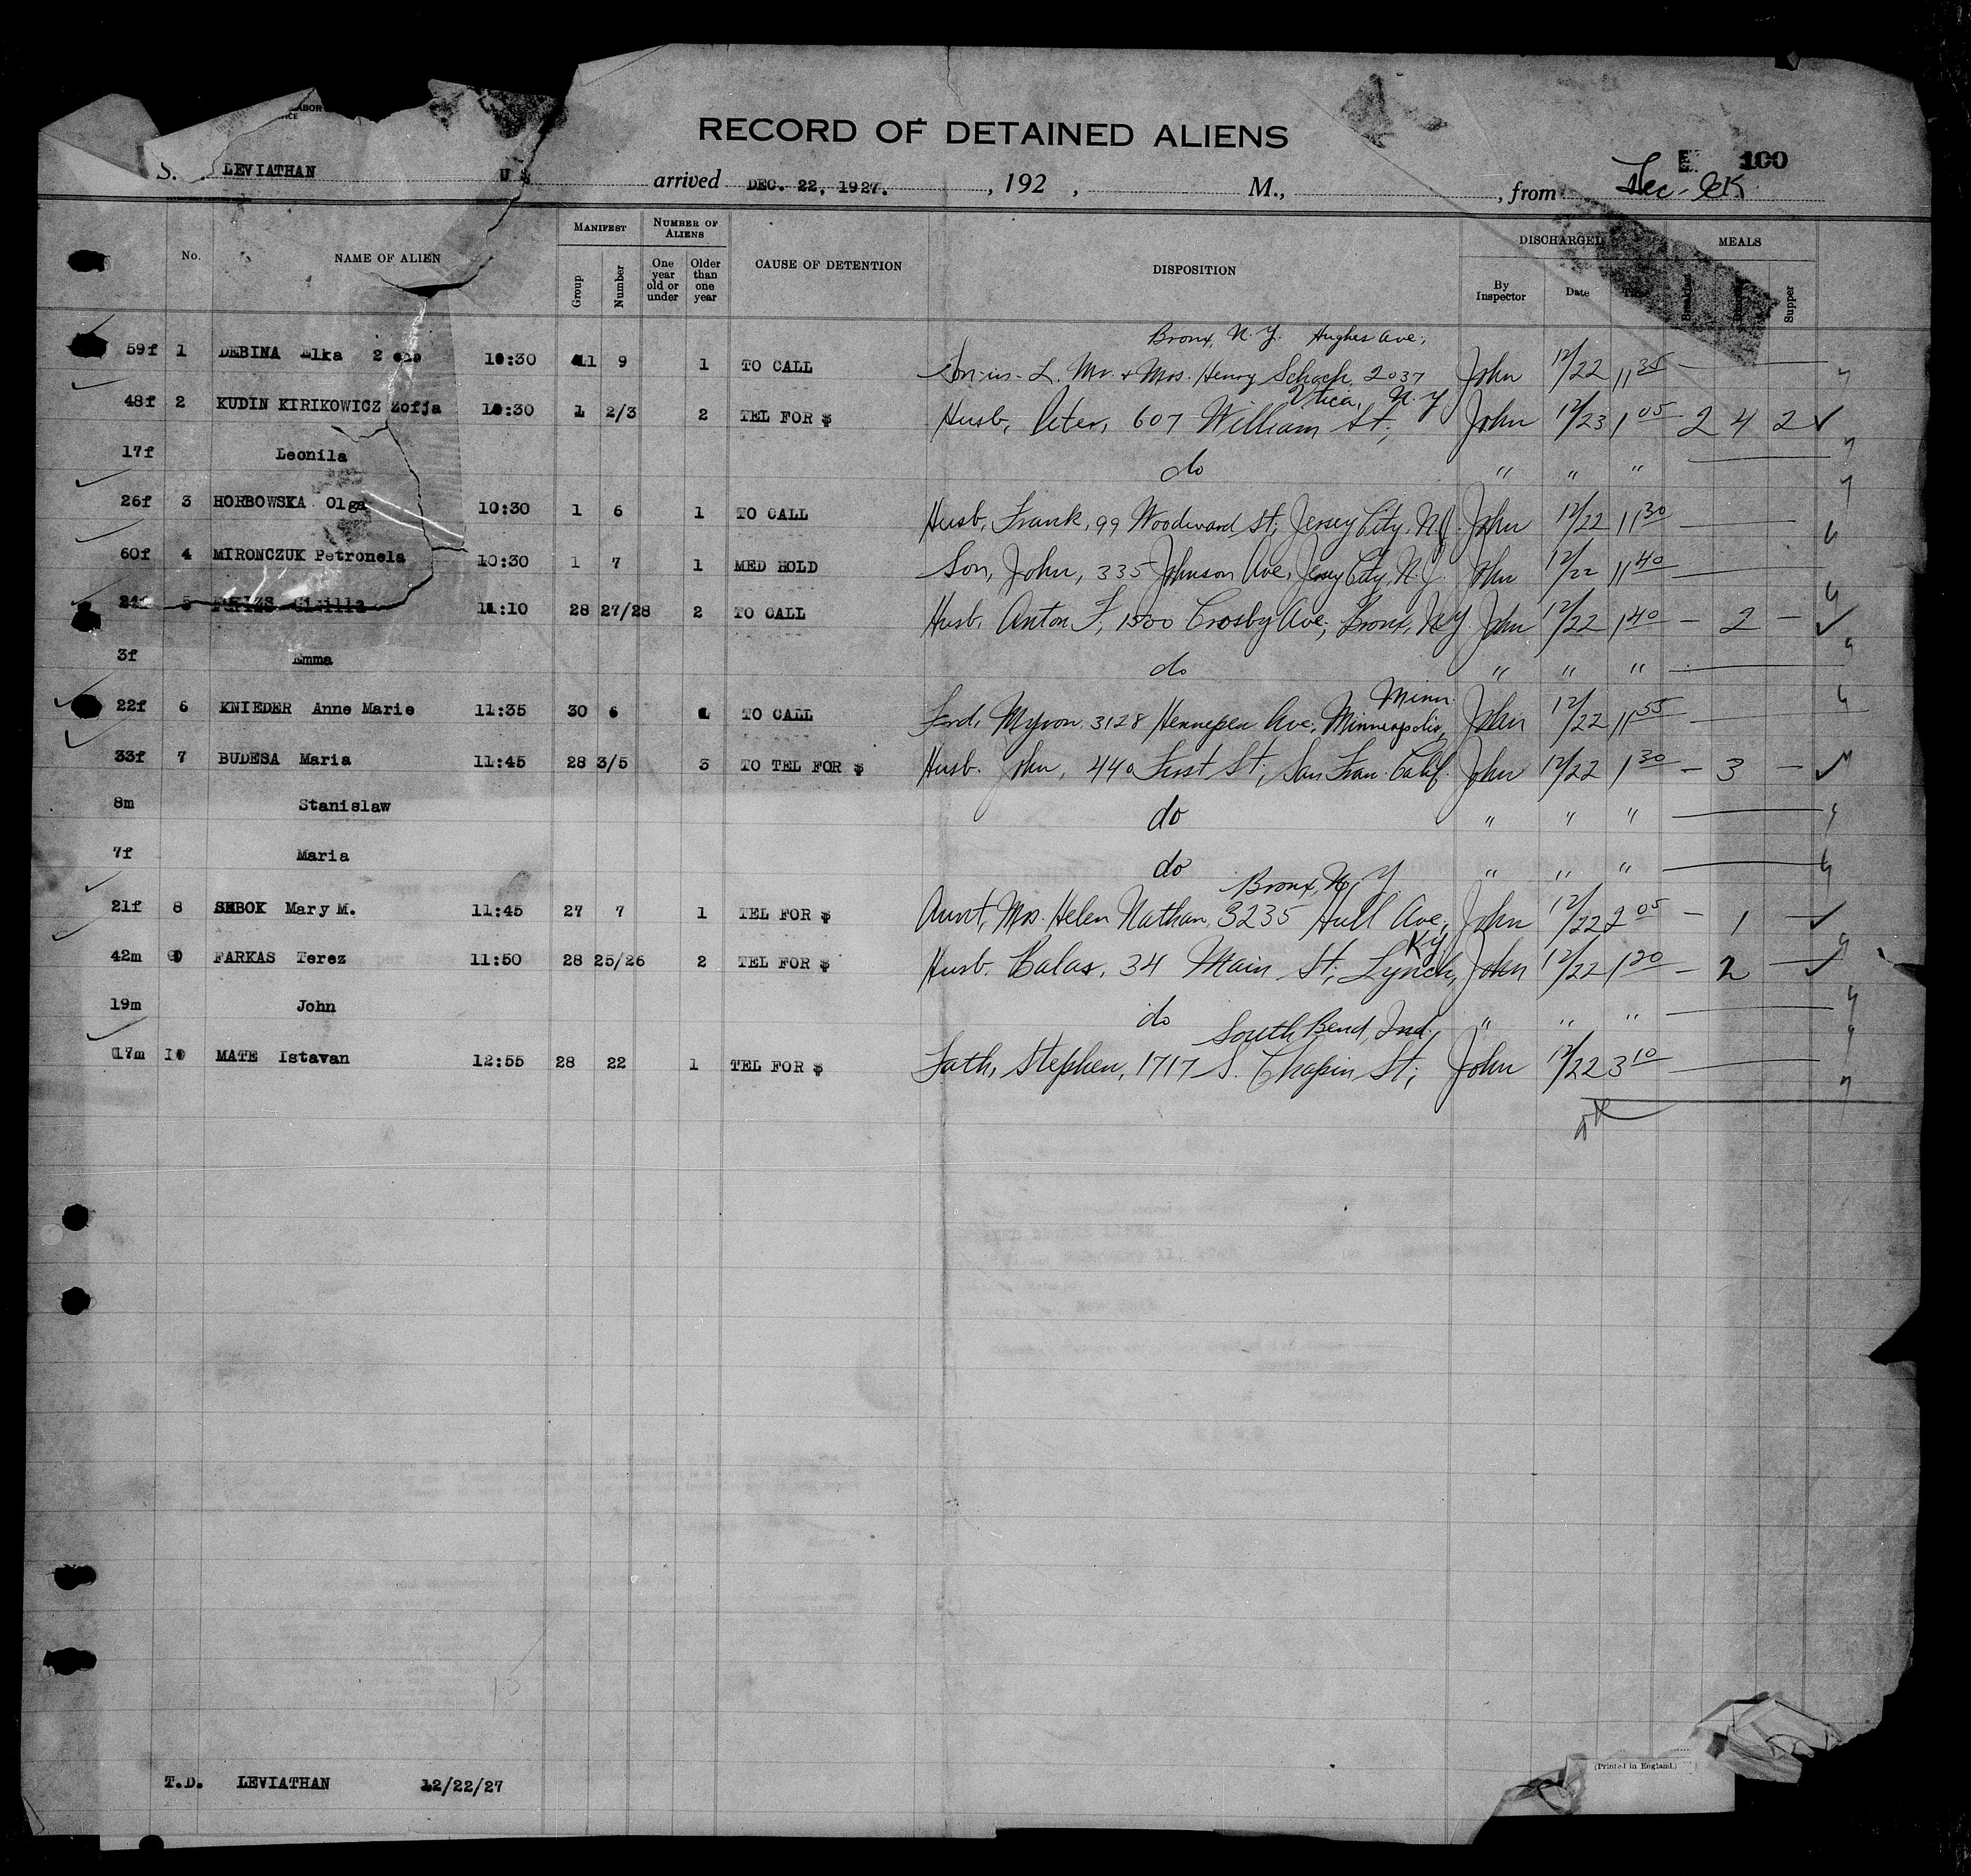 ABOR
ICE
RECORD OF DETAINED ALIENS
100
S. LEVIATHAN arrived DEC. 22, 1927. , 192 , M., , from
No. NAME OF ALIEN MANIFEST Group Number NUMBER OF ALIENS One year old or under Older than one year CAUSE OF DETENTION DISPOSITION DISCHARGED By Inspector Date MEALS Breakfast Supper
Bronx, N. Y. Hughes Ave;
59f 1 DEBINA Elka 2 10:30 11 9 1 TO CALL Son-in-L. Mr. + Mrs. Henry Schach, 2037 John 12/22 11 35 —
Utica, N.Y
48f 2 KUDIN KIRIKOWICZ Zofja 10:30 1 2/3 2 TEL FOR $ Husb, Peter, 607 William St; John 12/23 1 05 2 4 2 ✓
17f Leonila do " " "
26f 3 HORBOWSKA Olga 10:30 1 6 1 TO CALL Husb, Frank, 99 Woodward St; Jersey City, NJ. John 12/22 11 30 —
60f 4 MIRONCZUK Petronela 10:30 1 7 1 MED HOLD Son, John, 335 Johnson Ave, Jersey City, N.J. John 12/22 11 40 —
24f 5 11:10 28 27/28 2 TO CALL Husb. Anton F, 1500 Crosby Ave; Bronx, NY John 12/22 1 40 — 2 — ✓
3f Emma do " " "
Minn.
22f 6 KNIEDER Anne Marie 11:35 30 6 1 TO CALL Frd, Myron, 3128 Hennepen Ave; Minneapolis, John 12/22 11 55 —
33f 7 BUDESA Maria 11:45 28 3/5 3 TO TEL FOR $ Husb. John, 440 First St; San Fran. Calif. John 12/22 1 30 — 3 — ✓
8m Stanislaw do " " "
7f Maria do " " "
Bronx, N. Y
21f 8 SEBOK Mary M. 11:45 27 7 1 TEL FOR $ Aunt, Mrs. Helen Nathan, 3235 Hull Ave; John 12/22 2 05 — 1 — ✓
Ky
42m 9 FARKAS Terez 11:50 28 25/26 2 TEL FOR $ Husb. Balas, 34 Main St; Lynch, John 12/22 1 20 — 2 — ✓
19m John do " " "
South Bend, Ind.
17m 10 MATE Istavan 12:55 28 22 1 TEL FOR $ Fath, Stephen, 1717 S. Chapin St; John 12/22 3 10 —
T.D. LEVIATHAN 12/22/27
(Printed in England.)